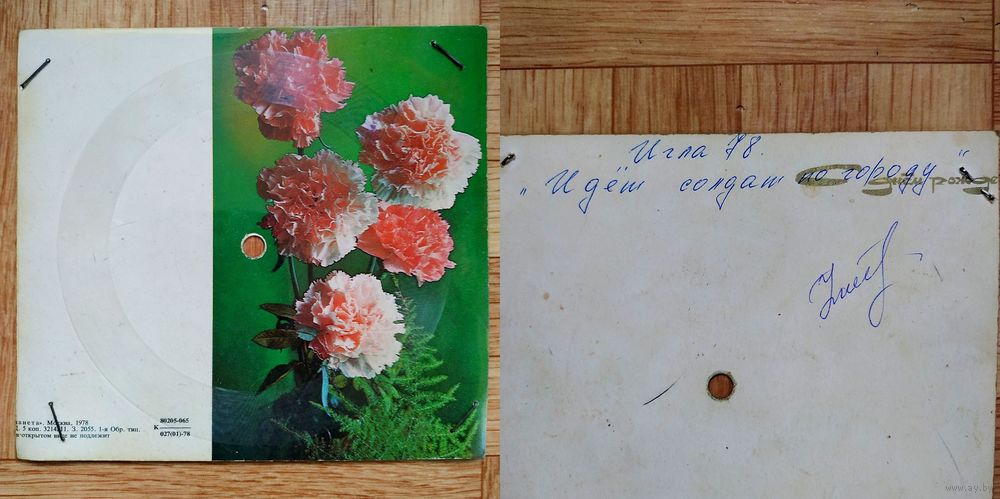 анета». Москва, 1978
5 коп. 3214-11. З. 2055. 1-я Обр. тип.
в открытом виде не подлежит
80205-065
К
027(01)-78
Игла 78.
„Идёт солдат по городу"
С днем рожде
www.ay.by